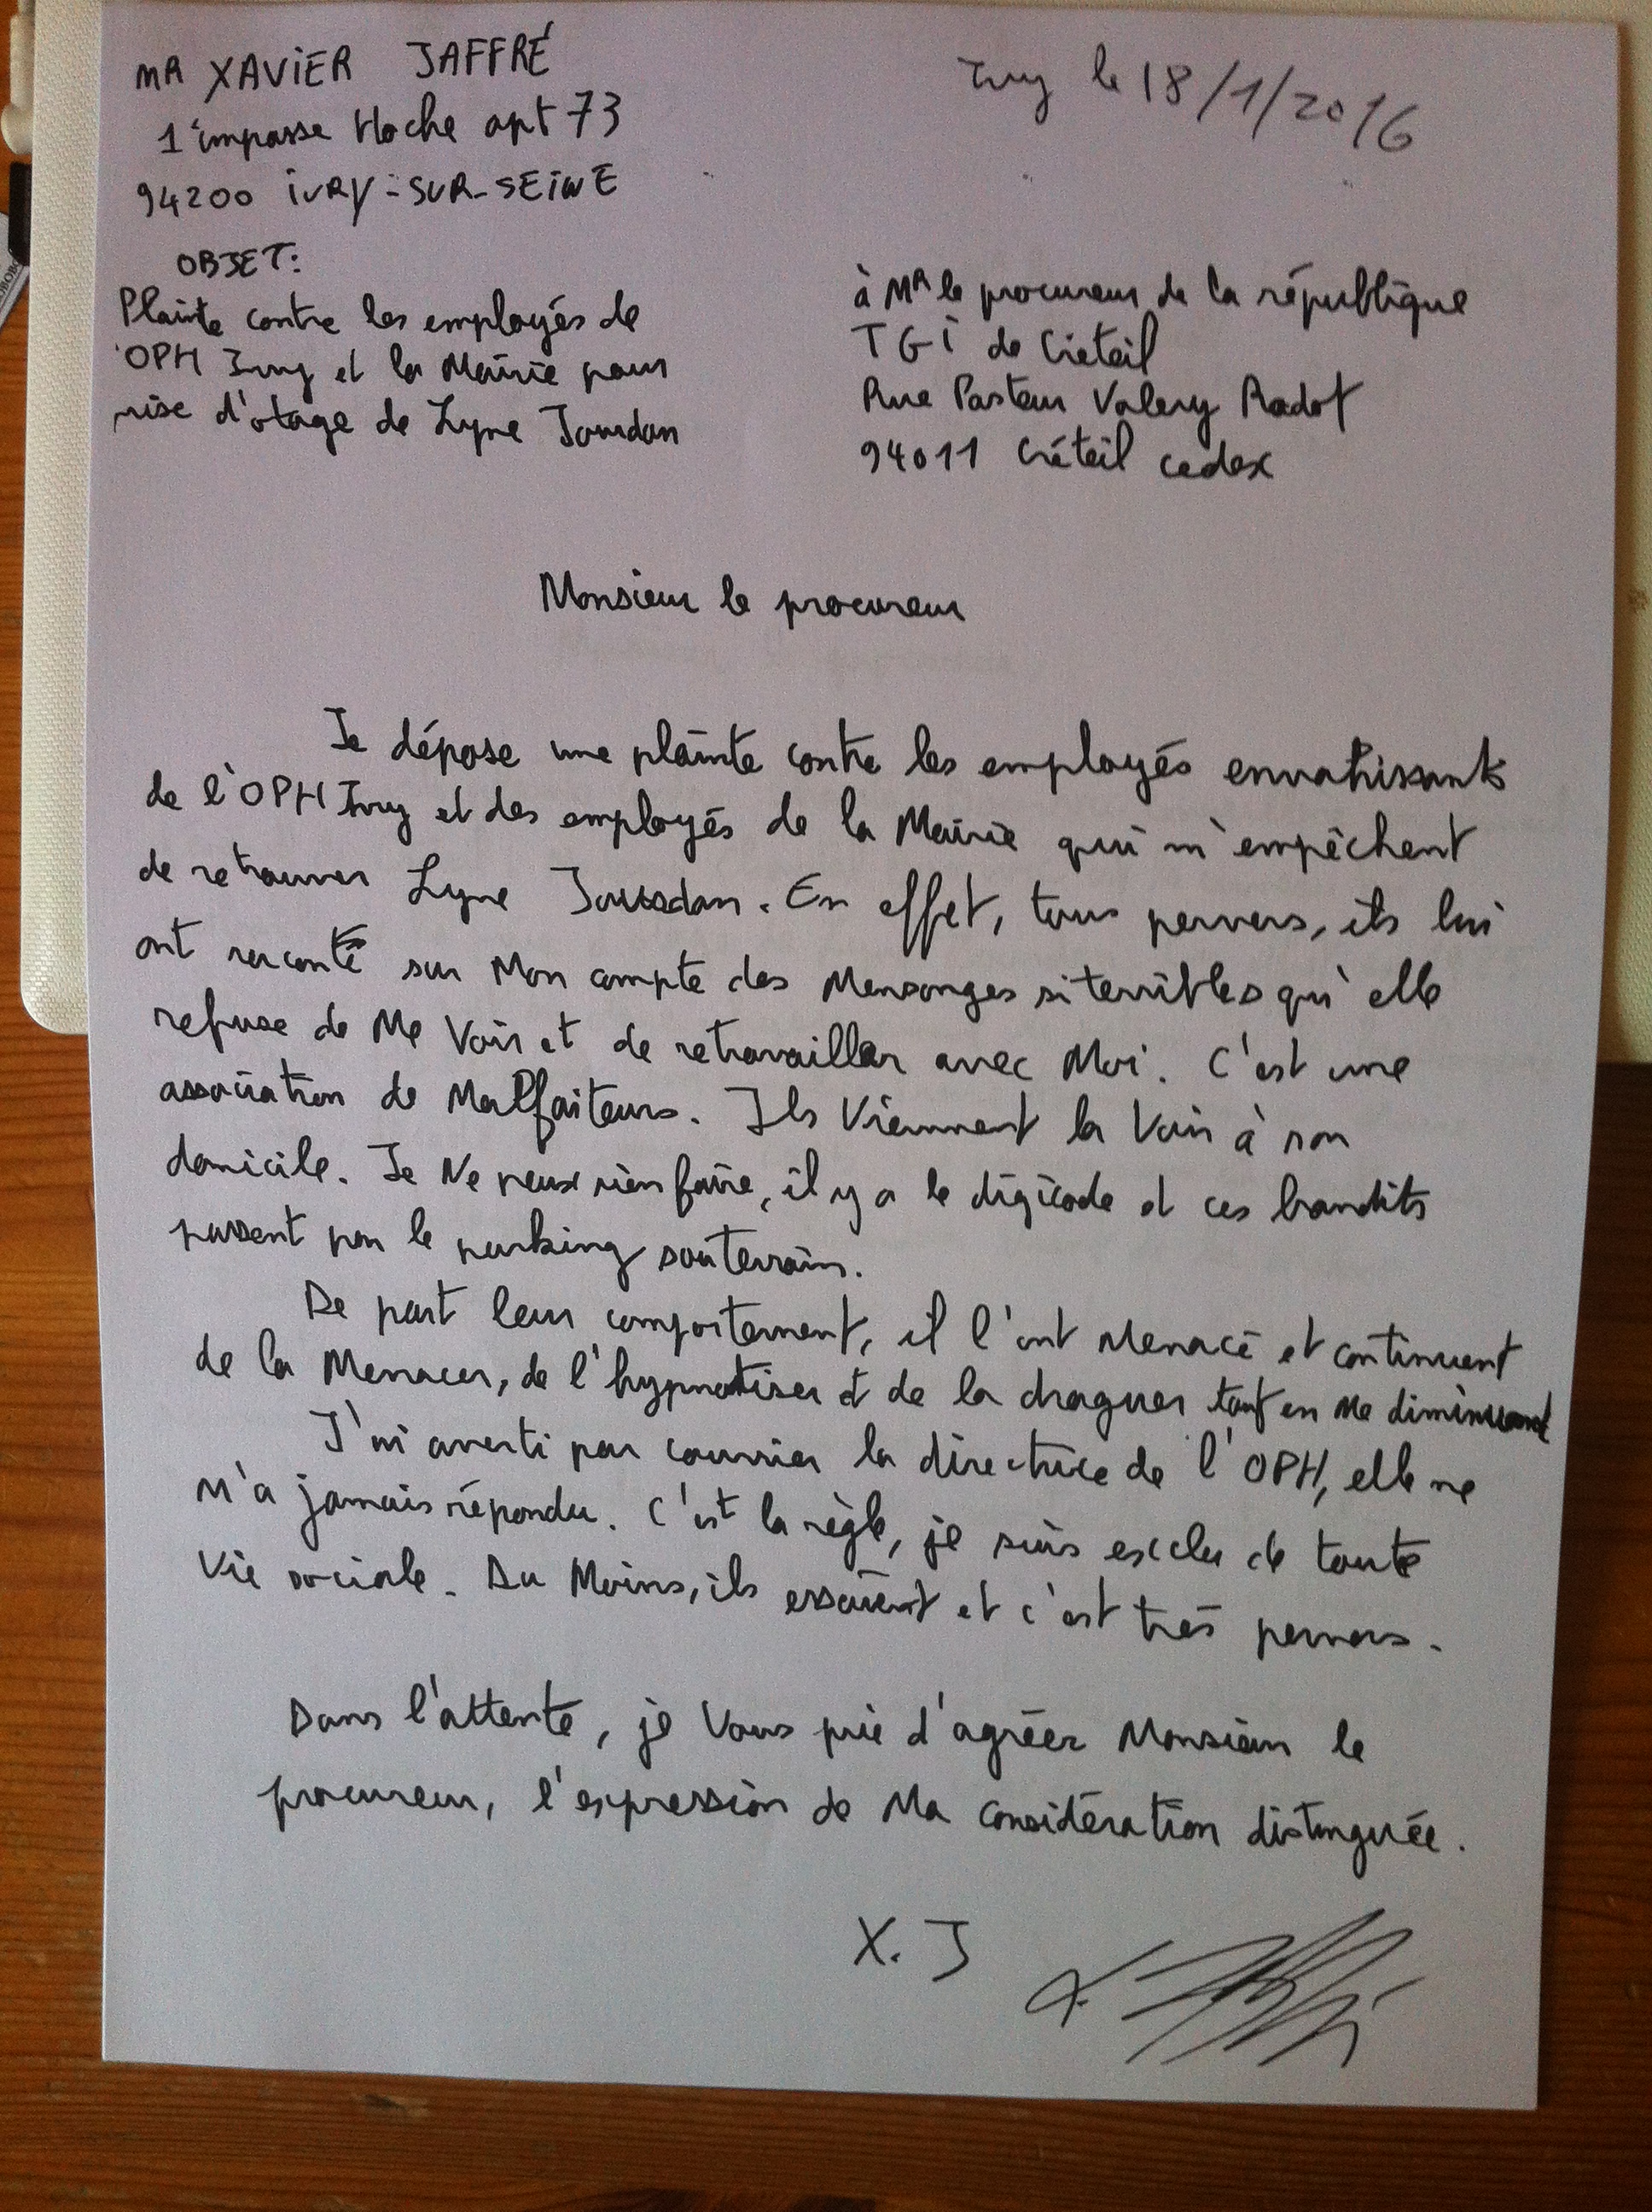 MR XAVIER JAFFRÉ
1 impasse Hoche apt 73
94200 IVRY-SUR-SEINE
Ivry le 18/1/2016
OBJET:
Plainte contre les employés de
OPH Ivry et la Mairie pour
prise d'otage de Lyne Jourdan
à MR le procureur de la république
TGI de Créteil
Rue Pasteur Valery Radot
94011 Créteil cedex
Monsieur le procureur
Je dépose une plainte contre les employés envahissants
de l'OPH Ivry et des employés de la Mairie qui m'empêchent
de retrouver Lyne Jourdan. En effet, tous pervers, ils lui
ont raconté sur Mon compte des Mensonges si terribles qu'elle
refuse de Me Voir et de retravailler avec Moi. C'est une
association de Malfaiteurs. Ils Viennent la Voir à son
domicile. Je Ne peux rien faire, il y a le digicode et ces bandits
passent par le parking souterrain.
De part leur comportement, il l'ont Menacé et continuent
de la Menacer, de l'hypnotiser et de la draguer tout en Me diminuant
J'ai averti par courrier la directrice de l'OPH, elle ne
M'a jamais répondu. C'est la règle, je suis exclu de toute
Vie sociale. Du Moins, ils essaient et c'est très pervers.
Dans l'attente, je Vous prie d'agréer Monsieur le
procureur, l'expression de Ma considération distinguée.
X. J